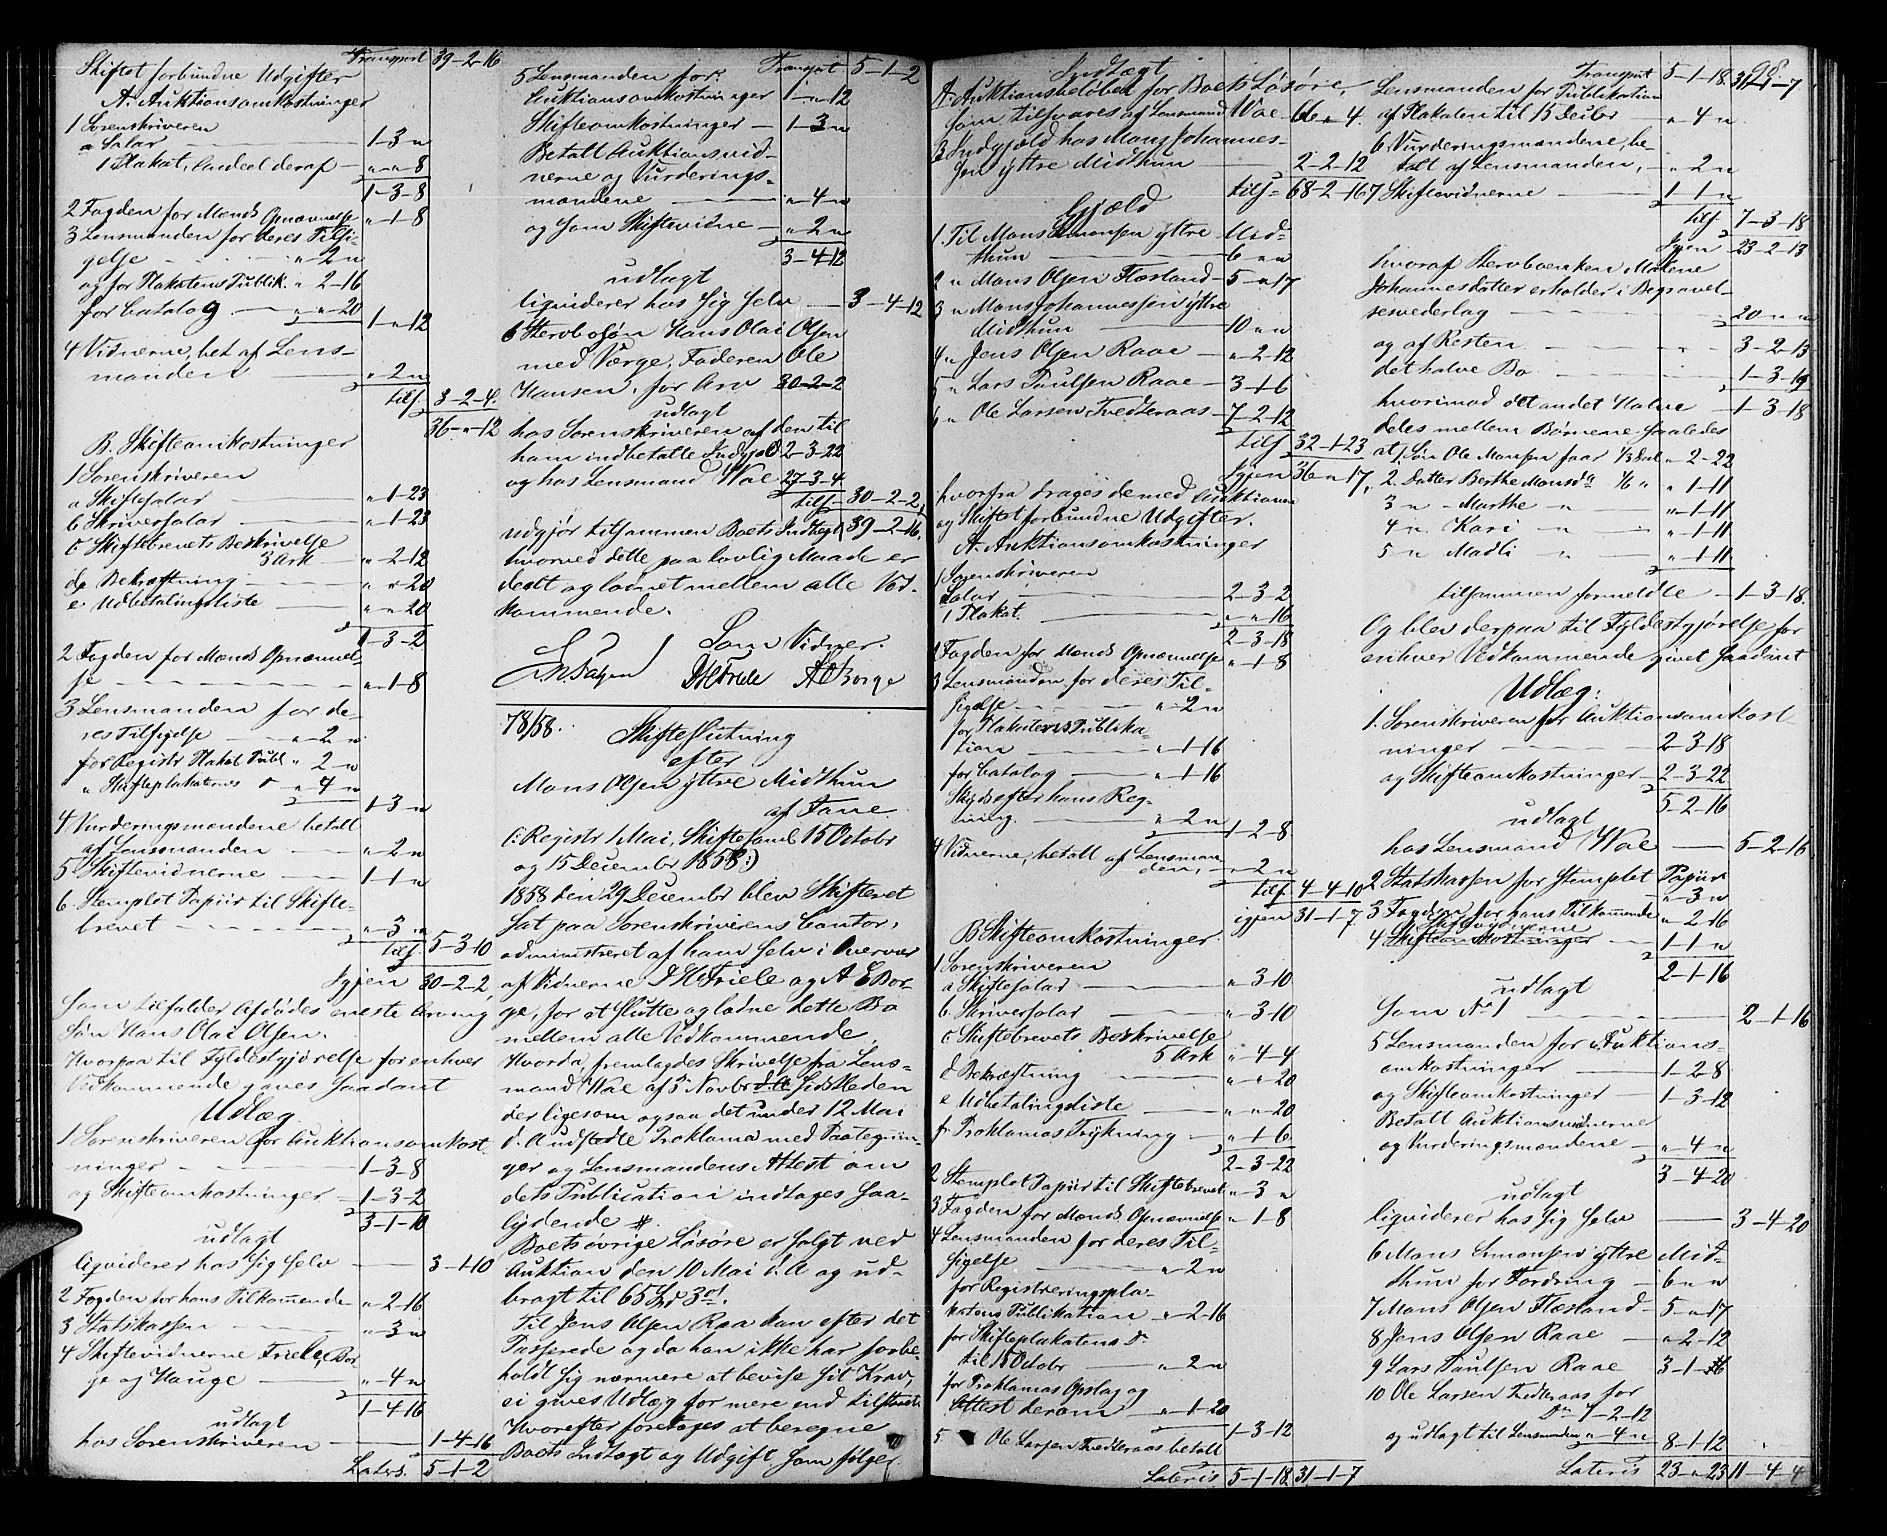 Transport 39-2-16
Skiftet forbundne Udgifter
A. Auktionsomkostninger
1 Sorenskriveren
a Salar 1-3-"
1 Plakat, Andeel deraf "-"-8
1-3-8
2 Fogden for Mænds Opnævnelse "-1-8
3 Lensmanden for deres Tilsi-
gelse "-2-"
og for Plakatens Publik. "-2-16
for Catalog "-"-20
1-"-12
4 Vidnerne, bet. af Lens-
manden "-2-"
tils. 3-2-4.
36-"-12
B. Skifteomkostninger
1 Sorenskriveren
a Skiftesalar "-1-23
b Skriversalar "-1-23
c Skiftebrevets Beskrivelse
3 Ark "-2-12
d Bekræftning "-"-20
e Udbetalingsliste "-"-20
1-3-2
2 Fogden for Mænds Opnævnel-
se "-1-8
3 Lensmanden for de-
res Tilsigelse "-2-"
for Registr. Plakat. Publ. "-2-"
" Skifteplakatens d° "-4-"
1-3-"
4 Vurderingsmændene betalt
af Lensmanden "-2-"
5 Skiftevidnerne 1-1-"
6 Stemplet Papiir til Skifte-
brevet "-3-"
tils. 5-3-10
Igjen 30-2-2,
som tilfalder Afdødes eneste Arving
Søn Hans Olai Olsen.
Hvorpaa til Fyldestgjørelse for enhver
Vedkommende gaves saadant
Udlæg
1 Sorenskriveren for Auktionsomkost-
ninger 1-3-8
og Skifteomkostninger 1-3-2
3-1-10
udlagt
liqviderer hos sig selv 3-1-10
2 Fogden for hans Tilkommende "-2-16
3 Statskassen "-3-"
4 Skiftevidnerne Friele, Bor-
ge og Hauge "-4-"
1-4-16
udlagt
hos Sorenskriveren 1-4-16
Lateris 5-1-2
Transport 5-1-2
5 Lensmanden for:
Auktionsomkostninger 1-"-12
Skifteomkostninger 1-3-"
Betalt Auktionsvid-
nerne og Vurderings-
mændene "-4-"
og som Skiftevidne "-2-"
3-4-12
udlagt
liqviderer hos sig selv 3-4-12
6 Stervbosøn Hans Olai Olsen
med Værge, Faderen Ole
Hansen, for Arv 30-2-2
udlagt
hos Sorenskriveren af den til
ham indbetalte Indgjeld 2-3-22
og hos Lensmand Wae 27-3-4
tils. 30-2-2,
udgjør tilsammen Boets Indtægt 39-2-16,
hvorved dette paa lovlig Maade er
deelt og lodnet mellem alle Ved-
kommende.
Som Vidner.
JHFriele AEBorge
78/58.
Skifteslutning
efter
Mons Olsen yttre Midthun
af Fane.
(: Registr. 1 Mai, Skiftesaml. 15 Octobr
og 15 Decembr 1858:)
1858 den 29 Decembr blev Skifteret
sat paa Sorenskriverens Contor,
administreret af ham selv i Overvær
af Vidnerne JHFriele og A E Bor-
ge, for at slutte og lodne dette Bo
mellem alle Vedkommende.
Hvorda, fremlagdes Skrivelse fra Lens-
mand Wae af 5 Novbr sidstleden
der ligesom ogsaa det under 12 Mai
d. A. udstedte Proklama med Paategnin-
ger og Lensmandens Attest om
dets Publication indtages saa-
lydende #.
Boets øvrige Løsøre er solgt ved
Auktion den 10 Mai d. A og ud-
bragt til 65 Spd 3 ort.
Til Jens Olsen Raa kan efter det
Passerede og da han ikke har forbe-
holdt sig nærmere at bevise sit Krav,
ei gives Udlæg for mere end tilstaaet.
Hvorefter foretoges at beregne
Boets Indtægt og Udgift som følger
Indtægt
A. Auktionsbeløbet for Boets Løsøre,
som tilsvares af Lensmand Wae 66-"-4.
B Indgjeld hos Mons Johannes-
sen yttre Midthun 2-2-12
tils= 68-2-16
Gjeld
1. Til Mons Simonsen yttre Mid-
thun 6-"-"
2 " Mons Olsen Flæsland 5-"-17
3 " Mons Johannessen yttre
Midthun 10-"-"
4 " Jens Olsen Raae "-2-12
5 " Lars Paulsen Raae 3-1-6
6 " Ole Larsen Tvedteraas 7-2-12
tils 32-1-23
Igjen 36-"-17,
hvorfra drages de med Auktionen
og Skiftet forbundne Udgifter.
A. Auktionsomkostninger
1 Sorenskriveren
Salar 2-3-2
1 Plakat. "-"-16
2-3-18
2 Fogden for Mænds Opnævnelse "-1-8
3 Lensmanden for deres Til-
sigelse "-2-"
for Plakatens Publika-
tion "-1-16
for Catalog "-1-16
Skyds efter hans Reg-
ning. "-2-"
1-2-8
4 Vidnerne, betalt af Lensman-
den, "-2-"
tils 4-4-10
igjen 31-1-7
B Skifteomkostninger.
1 Sorenskriveren
a Skiftesalar "-3-10
b Skriversalar "-3-10
c Skiftebrevets Beskrivelse
5 Ark "-4-4
d Bekræftning "-"-20
e Udbetalingsliste "-"-20
f Proklamas Trykning "-1-6
2-3-22
2 Stemplet Papiir til Skiftebrevet "-3-"
3 Fogden for Mænds Opnævnelse "-1-8
4 Lensmanden for deres Til-
sigelse "-2-"
for Registreringspla-
katens Publikation "-2-16
for Skifteplakatens d°
til 15 Octobr "-2-"
for Proklamas Opslag og
Attest derom "-1-20
1-3-12
5 Ole Larsen Tvedteraas betalt
Lateris 5-1-18 31-1-7
98
Transport 5-1-18 31-1-7
Lensmanden for Publikation
af Plakaten til 15 Decbr "-4-"
6 Vurderingsmændene, be-
talt af Lensmanden, "-2-"
7 Skiftevidnerne 1-1-"
tils 7-3-18
Igjen 23-2-13
hvoraf Stervboenken Malene
Johannesdatter erholder i Begravel-
sesvederlag 20-"-"
og af Resten 3-2-13
det halve Bo 1-3-19
hvorimod det andet Halve 1-3-18
deles mellem Børnene saaledes
at 1. Søn Ole Monsen faar 1/3 Deel "-2-22
2. Datter Berthe Monsd. 1/6 " "-1-11
3 " - Marthe " "-1-11
4 " Kari " "-1-11
5 " Madli " "-1-11
tilsammen formeldte 1-3-18.
Og blev derpaa til Fyldestgjørelse for
enhver Vedkommende givet saadant
Udlæg:
1. Sorenskriveren for Auktionsomkost-
ninger 2-3-18
og Skifteomkostninger 2-3-22
5-2-16
udlagt
hos Lensmand Wae 5-2-16
2 Statskassen for stemplet Papiir "-3-"
3 Fogden for hans Tilkommende "-2-16
Skiftevidnerne
4 Skifteomkostninger 1-1-"
2-1-16
udlagt
som N° 1 2-1-16
5 Lensmanden for Auktions-
omkostninger 1-2-8
og Skifteomkostninger 1-3-12
Betalt Auktionsvidnerne
og Vurderingsmændene "-4-"
3-4-20
udlagt
liqviderer hos sig selv 3-4-20
6 Mons Simonsen yttre Mid-
thun for Fordring 6-"-"
7 Mons Olsen Flæsland 5-"-17
8 Jens Olsen Raae "-2-12
9 Lars Paulsen Raae 3-1-6
10 Ole Larsen Tvedteraas for
D° 7-2-12
og udlagt til Lensmanden "-4-" 8-1-12
Lateris 23-"-23 11-4-4